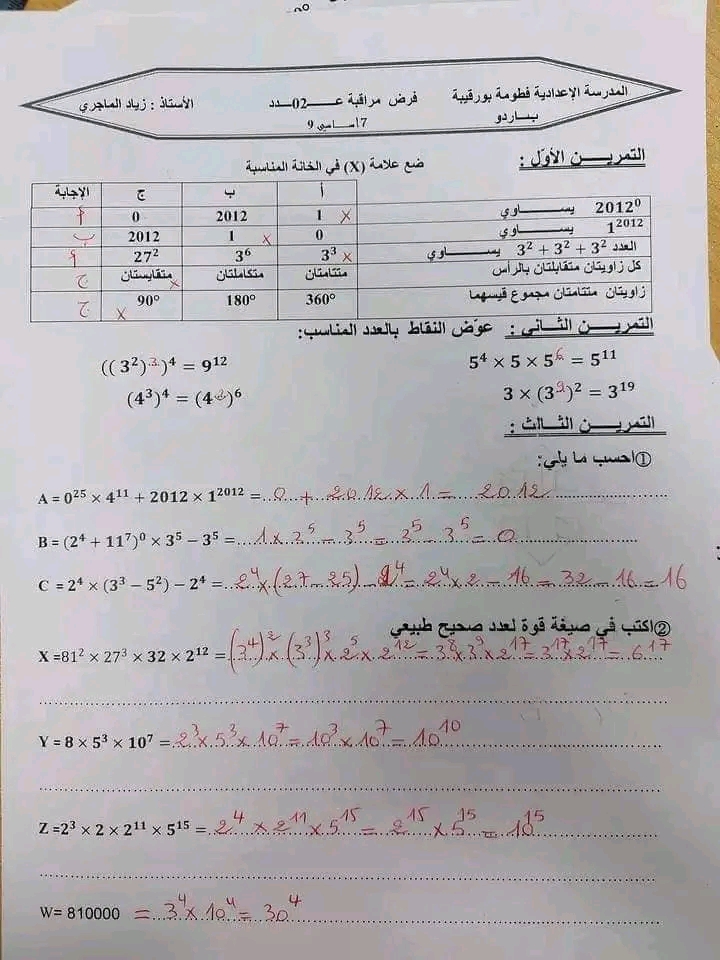 المدرسة الإعدادية فطومة بورقيبة بـــاردو
فرض مراقبة عـــــ02ــدد
7أســاسي 9
الأستاذ : زياد الماجري
التمريـــــن الأوّل :
ضع علامة (X) في الخانة المناسبة
أ ب ج الإجابة
2012⁰ يســـــــاوي 1 X 2012 0 أ
1²⁰¹² يســـــــاوي 0 1 X 2012 ب
العدد 3² + 3² + 3² يســـــــاوي 3³ X 3⁶ 27² أ
كل زاويتان متقابلتان بالرأس متتامتان متكاملتان متقايستان X ج
زاويتان متتامتان مجموع قيسهما 360° 180° 90° X ج
التمريـــــن الثـــاني : عوّض النقاط بالعدد المناسب:
5⁴ × 5 × 5⁶ = 5¹¹
((3²)³)⁴ = 9¹²
3 × (3⁹)² = 3¹⁹
(4³)⁴ = (4²)⁶
التمريـــــن الثـــالث :
①احسب ما يلي:
A = 0²⁵ × 4¹¹ + 2012 × 1²⁰¹² = 0 + 2012 × 1 = 2012
B = (2⁴ + 11⁷)⁰ × 3⁵ − 3⁵ = 1 × 3⁵ − 3⁵ = 3⁵ − 3⁵ = 0
C = 2⁴ × (3³ − 5²) − 2⁴ = 2⁴ × (27 − 25) − 2⁴ = 2⁴ × 2 − 16 = 32 − 16 = 16
②اكتب في صيغة قوة لعدد صحيح طبيعي
X =81² × 27³ × 32 × 2¹² = (3⁴)² × (3³)³ × 2⁵ × 2¹² = 3⁸ × 3⁹ × 2¹⁷ = 3¹⁷ × 2¹⁷ = 6¹⁷
Y = 8 × 5³ × 10⁷ = 2³ × 5³ × 10⁷ = 10³ × 10⁷ = 10¹⁰
Z =2³ × 2 × 2¹¹ × 5¹⁵ = 2⁴ × 2¹¹ × 5¹⁵ = 2¹⁵ × 5¹⁵ = 10¹⁵
W= 810000 = 3⁴ × 10⁴ = 30⁴